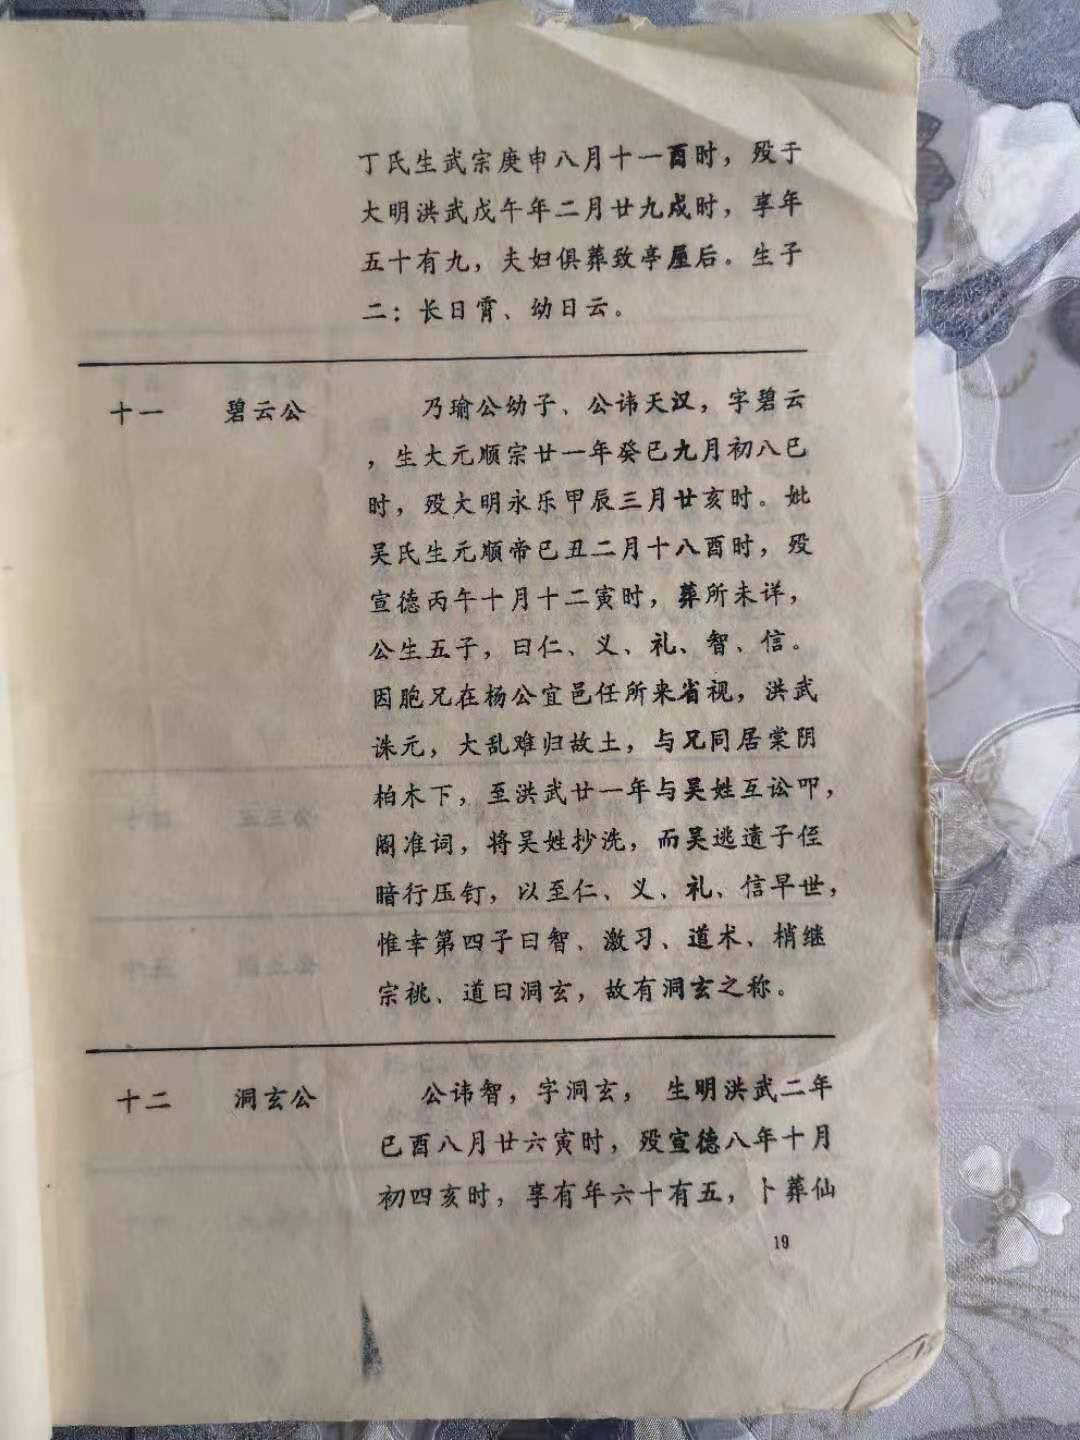 丁氏生武宗庚申八月十一酉时，殁于
大明洪武戊午年二月廿九戍时，享年
五十有九，夫妇俱葬致亭屋后。生子
二：长日霄、幼日云。
十一 碧云公 乃瑜公幼子、公讳天汉，字碧云
，生大元顺宗廿一年癸巳九月初八巳
时，殁大明永乐甲辰三月廿亥时。妣
吴氏生元顺帝已丑二月十八酉时，殁
宣德丙午十月十二寅时，葬所未详，
公生五子，曰仁、义、礼、智、信。
因胞兄在杨公宜邑任所来省视，洪武
诛元，大乱难归故土，与兄同居棠阴
柏木下，至洪武廿一年与吴姓互讼叩，
阁准词，将吴姓抄洗，而吴逃遗子侄
暗行压钉，以至仁、义、礼、信早世，
惟幸第四子曰智、激习、道术、梢继
宗祧、道曰洞玄，故有洞玄之称。
十二 洞玄公 公讳智，字洞玄， 生明洪武二年
已酉八月廿六寅时，殁宣德八年十月
初四亥时，享有年六十有五，卜葬仙
19